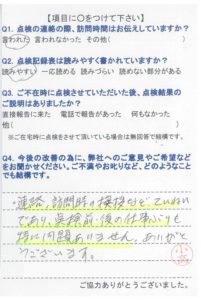 【項目に〇をつけて下さい】
Q1. 点検の連絡の際、訪問時間はお伝えしていますか?
言われた 言われなかった その他( )
Q2. 点検記録表は読みやすく書かれていますか?
読みやすい 一応読める 読みづらい 読めない部分がある
Q3. ご不在時に点検させていただいた後、点検結果の
ご説明はありましたか?
直接報告に来た 電話で報告があった 何もなかった
他( )
※ご在宅時に点検をさせて頂いている場合は無回答で結構です。
Q4. 今後の改善の為に、弊社へのご意見やご希望などを
お聞かせください。ご不満やお叱りなど、どのようなこと
でも結構です。
・連絡、訪問時の挨拶などていねい
であり、点検前、後の仕事ぶりも
特に問題ありません。ありがと
うございます。
ご協力ありがとうございました。